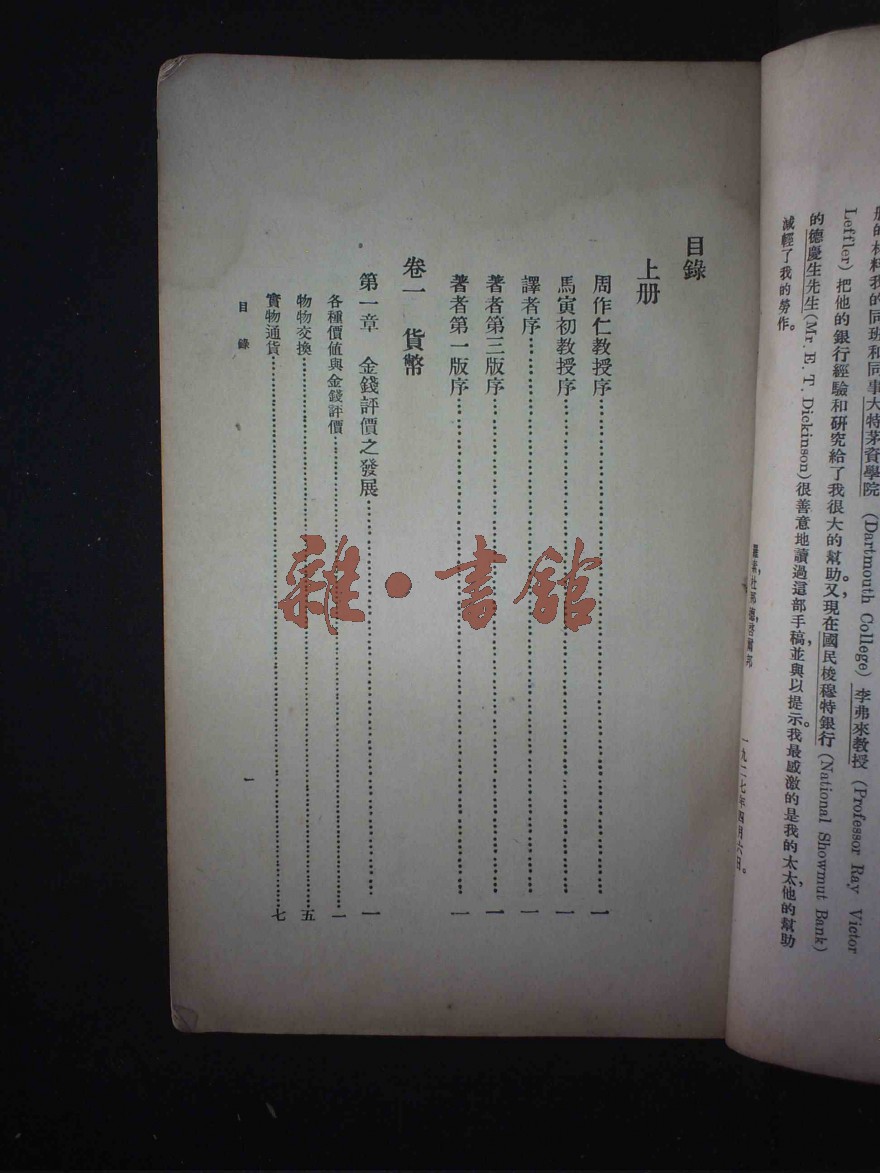 册的材料我的同班和同事大特茅資學院 (Dartmouth College) 李弗來教授 (Professor Ray Victor
Leffler) 把他的銀行經驗和研究給了我很大的幫助。又,現在國民梭穆特銀行 (National Showmut Bank)
的德慶生先生 (Mr. E. T. Dickinson) 很善意地讀過這部手稿,並與以提示。我最感激的是我的太太,他的幫助
減輕了我的勞作。
一九二七年四月六日。
目錄
上册
周作仁教授序……一
馬寅初教授序……一
譯者序……一
著者第三版序……一
著者第一版序……一
卷一 貨幣
第一章 金錢評價之發展……一
各種價値與金錢評價……一
物物交換……五
實物通貨……七
目錄
一
雜·書館